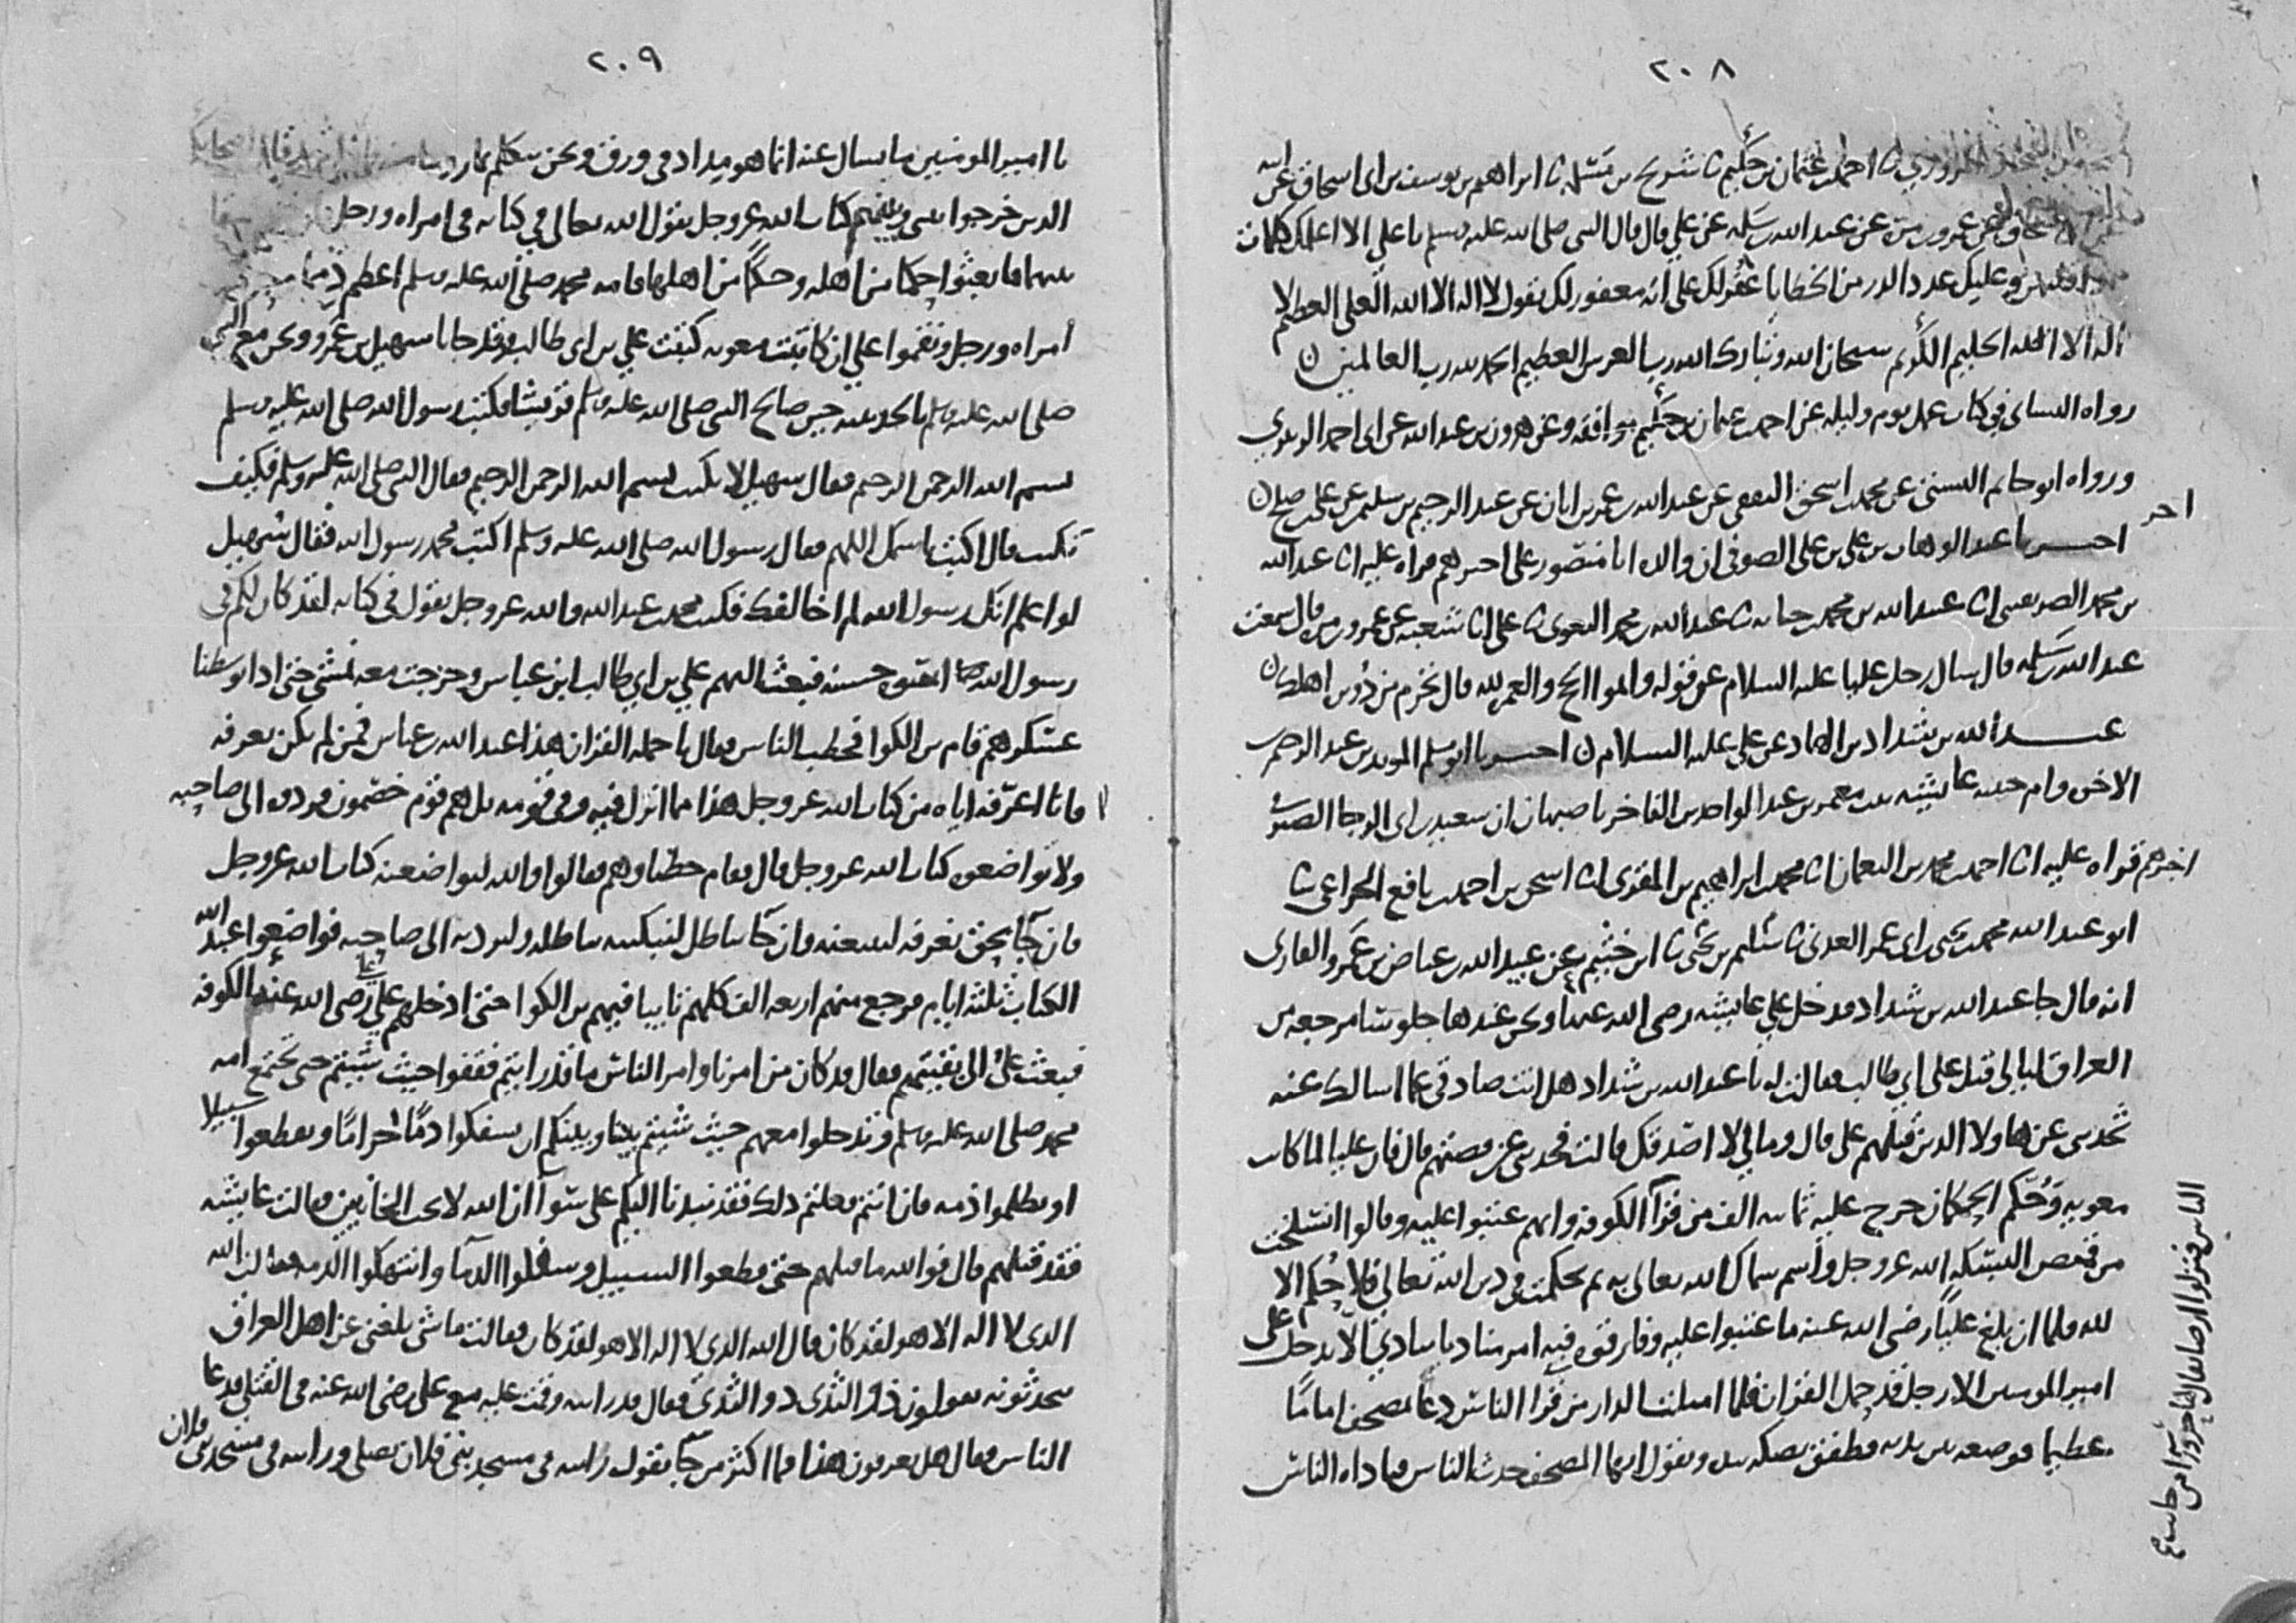 ٢٠٨
احمد بن عثمان بن حكيم ثنا شريح بن مسلمة ثنا ابراهيم بن يوسف بن ابي اسحاق عن ابيه
عن عمرو بن مرة عن عبد الله بن سلمة عن علي قال قال النبي صلى الله عليه وسلم يا علي الا اعلمك كلمات
وعليك عدد الذر من الخطايا غفر لك على انه مغفور لك تقول لا اله الا الله العلي العظيم لا
اله الا الله الحليم الكريم سبحان الله وتبارك الله رب العرش العظيم الحمد لله رب العالمين
رواه النسائي في كتاب عمل يوم وليلة عن احمد بن عثمان بن حكيم موافقة وعن هرون بن عبد الله عن ابي احمد الزبيري
ورواه ابو حاتم البستي عن محمد بن اسحق الثقفي عن عبد الله بن عمر بن ابان عن عبد الرحيم بن سليمن عن علي بن صالح
اخر
اخبرنا عبد الوهاب بن علي بن علي الصوفي ان والده ابا منصور علي اخبرهم قراه عليه انا عبد الله
بن محمد الصريفيني انا عبيد الله بن محمد بن حبابة ثنا عبد الله بن محمد البغوي ثنا علي انا شعبة عن عمرو بن مرة قال سمعت
عبد الله بن سلمة قال سال رجل عليا عليه السلام عن قوله واتموا الحج والعمرة لله قال تحرم من دويرة اهلك
عبد الله بن شداد بن الهاد عن علي عليه السلام اخبرنا ابو مسلم المويد بن عبد الرحيم بن
الاخوة وام حبيبة عايشة بنت معمر بن عبد الواحد بن الفاخر باصبهان ان سعيد بن ابي الرجا الصيرفي
اخبرهم قراه عليه انا احمد بن محمد بن النعمان انا محمد بن ابراهيم بن المقري انا اسحق بن احمد بن نافع الخزاعي ثنا
ابو عبد الله محمد بن يحيى بن ابي عمر العدني ثنا سليم بن يحيى ثنا ابن خثيم عن عبيد الله بن عياض بن عمرو القاري
انه قال جا عبد الله بن شداد فدخل علي عايشة رضي الله عنها ونحن عندها جلوسا مرجعه من
العراق ليالي قتل علي بن ابي طالب فقالت له يا عبد الله بن شداد هل انت صادقي عما اسالك عنه
تحدثني عن هاولا الذين قتلهم علي قال ومالي لا اصدقك قالت فحدثني عن قصتهم قال فان عليا لما كاتب
معوية وحكم الحكمان خرج عليه ثمانية الف من قرا الكوفة وانهم عتبوا عليه وقالوا انسلخت
من قميص البسكه الله عز وجل واسم سماك الله تعالى به ثم حكمت في دين الله تعالى فلا حكم الا
لله فلما ان بلغ عليا رضي الله عنه ما عتبوا عليه وفارقوه فيه امر مناديا ينادي الا يدخل على
امير المومنين الا رجل قد حمل القران فلما امتلت الدار من قرا الناس دعا بمصحف اماما
عظيما فوضعه بين يديه فطفق يصكه بيده ويقول ايها المصحف حدث الناس فناداه الناس
٢٠٩
يا امير المومنين ما يسال عنه انما هو مداد في ورق ونحن نتكلم بما
الذين خرجوا بيني وبينهم كتاب الله عز وجل يقول الله تعالى في كتابه في امراه ورجل
بينهما فابعثوا حكما من اهله وحكما من اهلها فامه محمد صلى الله عليه وسلم اعظم
امراه ورجل ونقموا علي ان كاتبت معوية كتبت علي بن ابي طالب وقد جانا سهيل بن عمرو ونحن مع النبي
صلى الله عليه وسلم بالحديبية حين صالح النبي صلى الله عليه وسلم قريشا فكتب رسول الله صلى الله عليه وسلم
بسم الله الرحمن الرحيم فقال سهيل لا تكتب بسم الله الرحمن الرحيم فقال النبي صلى الله عليه وسلم فكيف
نكتب قال اكتب باسمك اللهم فقال رسول الله صلى الله عليه وسلم اكتب محمد رسول الله فقال سهيل
لو اعلم انك رسول الله لم اخالفك فكتب محمد بن عبد الله والله عز وجل يقول في كتابه لقد كان لكم في
رسول الله اسوة حسنة فبعث اليهم علي بن ابي طالب ابن عباس وخرجت معه نمشي حتى اذا توسطنا
عسكرهم قام بن الكوا فخطب الناس وقال يا حملة القران هذا عبد الله بن عباس فمن لم يكن يعرفه
فانا اعرفه اياه من كتاب الله عز وجل هذا مما انزل فيه وفي قومه بل هم قوم خصمون فردوه الى صاحبه
ولا تواضعوه كتاب الله عز وجل قال فقام خطباوهم فقالوا والله لنواضعنه كتاب الله عز وجل
فان جا بحق نعرفه لنتبعنه وان جا بباطل لنبكتنه بباطله ولنردنه الى صاحبه فواضعوا عبد الله
الكتاب ثلثة ايام فرجع منهم اربعة الف كلهم تايب فيهم بن الكوا حتى ادخلهم على علي رضي الله عنه الكوفة
فبعث علي الى بقيتهم فقال قد كان من امرنا وامر الناس ما قد رايتم فقفوا حيث شيتم حتى تجتمع امه
محمد صلى الله عليه وسلم وتدخلوا معهم حيث شيتم بيننا وبينكم ان تسفكوا دما حراما وتقطعوا سبيلا
او تظلموا ذمه فان انتم فعلتم ذلك فقد نبذنا اليكم على سوا ان الله لا يحب الخاينين فقالت عايشة
فقد قتلهم قال فوالله ما قتلهم حتى قطعوا السبيل وسفكوا الدما وانتهكوا الذمة فقالت الله
الذي لا اله الا هو لقد كان قال الله الذي لا اله الا هو لقد كان فقالت ما شي بلغني عن اهل العراق
يتحدثونه يقولون ذو الثدي ذو الثدي فقال قد رايته وقمت عليه مع علي رضي الله عنه في القتلى فدعا
الناس فقال هل تعرفون هذا فما اكثر من جا يقول رايته في مسجد بني فلان يصلي ورايته في مسجد بني فلان